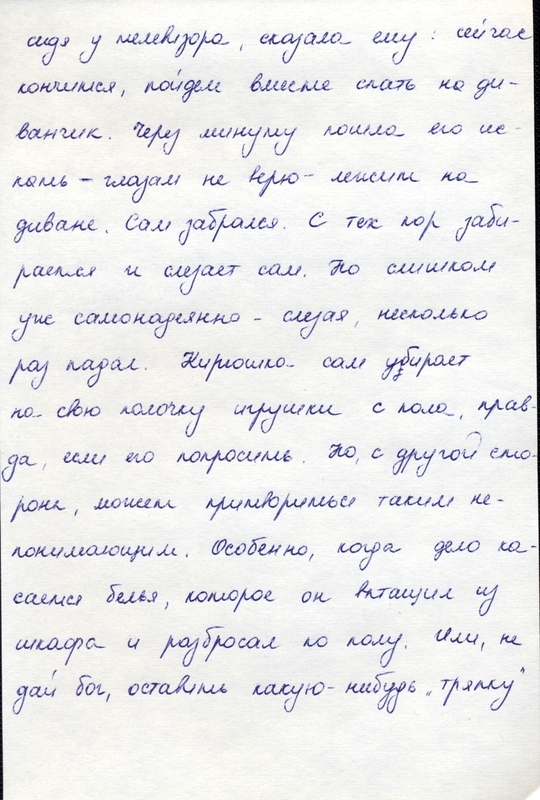 сидя у телевизора, сказала ему: сейчас
кончится, пойдем вместе спать на ди-
ванчик. Через минуту пошла его ис-
кать – глазам не верю – лежит на
диване. Сам забрался. С тех пор заби-
рается и слезает сам. Но слишком
уж самонадеянно – слезая, несколько
раз падал. Кирюшка сам убирает
на свою полочку игрушки с пола, прав-
да, если его попросить. Но, с другой сто-
роны, может притвориться таким не-
понимающим. Особенно, когда дело ка-
сается белья, которое он вытащил из
шкафа и разбросал по полу. Или, не
дай бог, оставить какую-нибудь „тряпку"